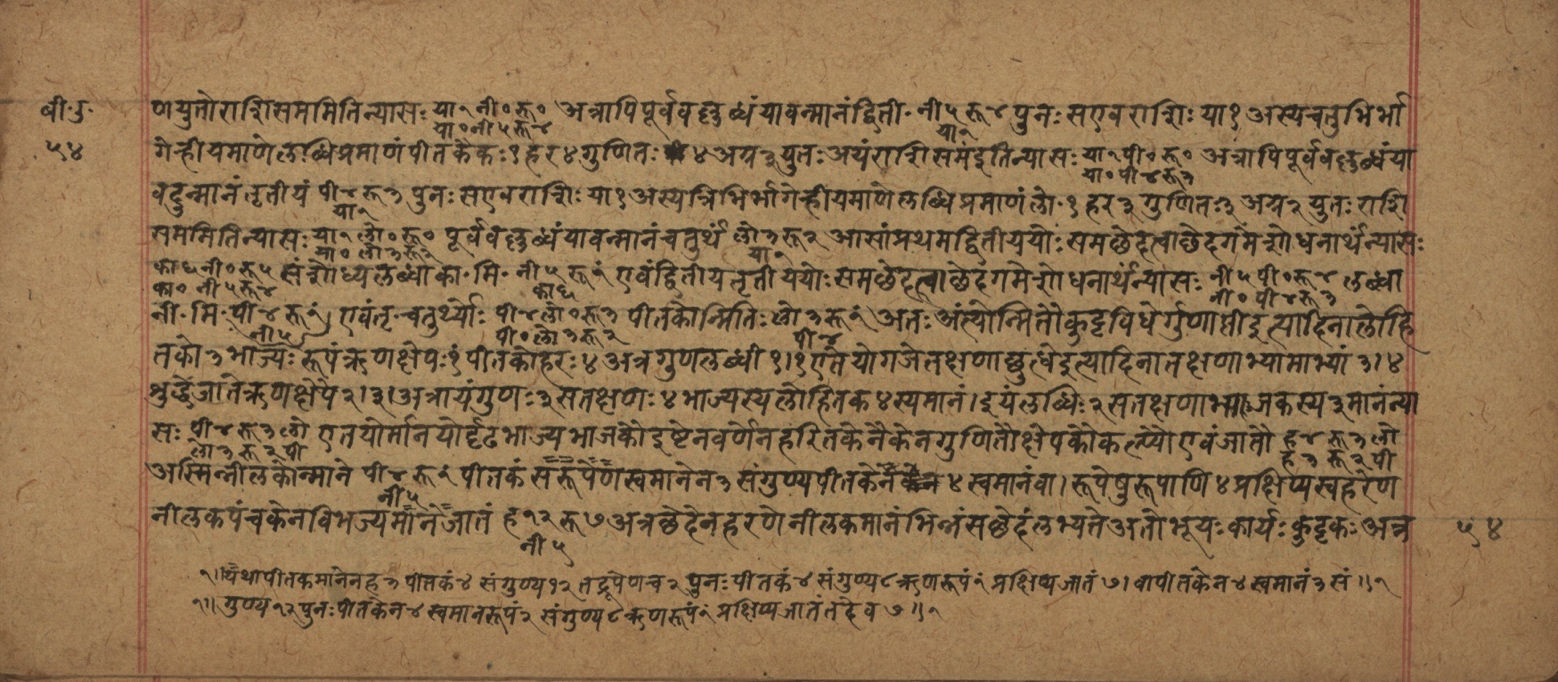 बी॰ग॰
५४
णयुतोराशिसममितिन्यासः या१नी०रू० अत्रापिपूर्ववल्लब्धंयावन्मानंद्विती॰ नी५रू४ पुनः सएवराशिः या१ अस्यचतुर्भिर्भा
या०नी५रू४ या१
गेन्हीयमाणेलब्धिप्रमाणंपीतकैकः१ हर४गुणितः ४ अग्र३युतः अयंराशिसमंइतिन्यासः या१पी०रू० अत्रापिपूर्ववल्लब्धंया
या०पी४रू३
वदुन्मानंतृतीयं पी४रू३ पुनः सएवराशिः या१ अस्यत्रिभिर्भागेन्हीयमाणेलब्धिप्रमाणंलो॰१ हर३ गुणितः३ अग्र२ युतः राशि
या१
सममितिन्यासः या१लो०रू० पूर्ववल्लब्धंयावन्मानंचतुर्थं लो३रू२ आसांप्रथमद्वितीययोः समछेदत्वाछेदगमेशोधनार्थंन्यासः
या०लो३रू२ या१
का६नी०रू५ संशोध्यलब्धाका॰मि॰ नी५रू१ एवंद्वितीयतृतीययोः समछेदत्वाछेदगमेशोधनार्थंन्यासः नी५पी०रू४ लब्धा
का०नी५रू४ का६ नी०पी४रू३
नी॰मि॰ पी४रू१ एवंतृ॰चतुर्थ्योः पी४लो०रू३ पीतकोन्मितिः लो३रू१ अतः अंत्योन्मितौकुट्टविधेर्गुणाप्तीइत्यादिनालोहि
नी५ पी०लो३रू२ पी४
तको३भाज्यः रूपंऋणक्षेपः१ पीतकोहरः४ अत्रगुणलब्धी १।१एतेयोगजेतक्षणाछुद्धेइत्यादिनातक्षणाभ्यामाभ्यां ३।४
शुद्धेजातेऋणक्षेपे २।३।अत्रायंगुणः३ सतक्षणः४ भाज्यस्यलोहितक४स्यमानं।इयंलब्धिः२ सतक्षणाभाजकस्य३मानंन्या
सः पी४रू३लो एतयोर्मानयोर्दृढभाज्यभाजकोइष्टेनवर्णेनहरितकेनैकेनगुणितौक्षेपकोकल्प्यौएवंजातौ ह४रू३लो
लो३रू२पी ह३रू२पी
अस्मिन्नीलकोन्माने पी४रू१ पीतकं सरूपेणस्वमानेन३ संगुण्यपीतकेन ४ स्वमानंवा।रूपेषुरूपाणि४प्रक्षिप्यस्वहरेण
नी५
नीलकपंचकेनविभज्यमानेजातं ह१२रू७अत्रछेदेनहरणेनीलकमानंभिन्नंसछेदंलभ्यतेअतोभूयः कार्यः कुट्टकः अत्र
नी५
५४
२॥यथापीतकमानेनह३ पीतकं४ संगुण्य१२ तद्रूपेणच२ पुनः पीतकं४ संगुण्य८ऋणरूपं१ प्रक्षिप्यजातं७।वापीतकेन४स्वमानं३सं॥२
२॥गुण्य१२पुनःपीतकेन४स्वमानरूपं२ संगुण्य८ऋणरूपं१प्रक्षिप्यजातंतदेव७॥२